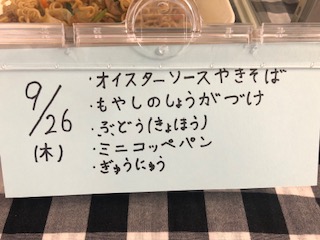 9/26
(木)
・オイスターソースやきそば
・もやしのしょうがづけ
・ぶどう(きょほう)
・ミニコッペパン
・ぎゅうにゅう